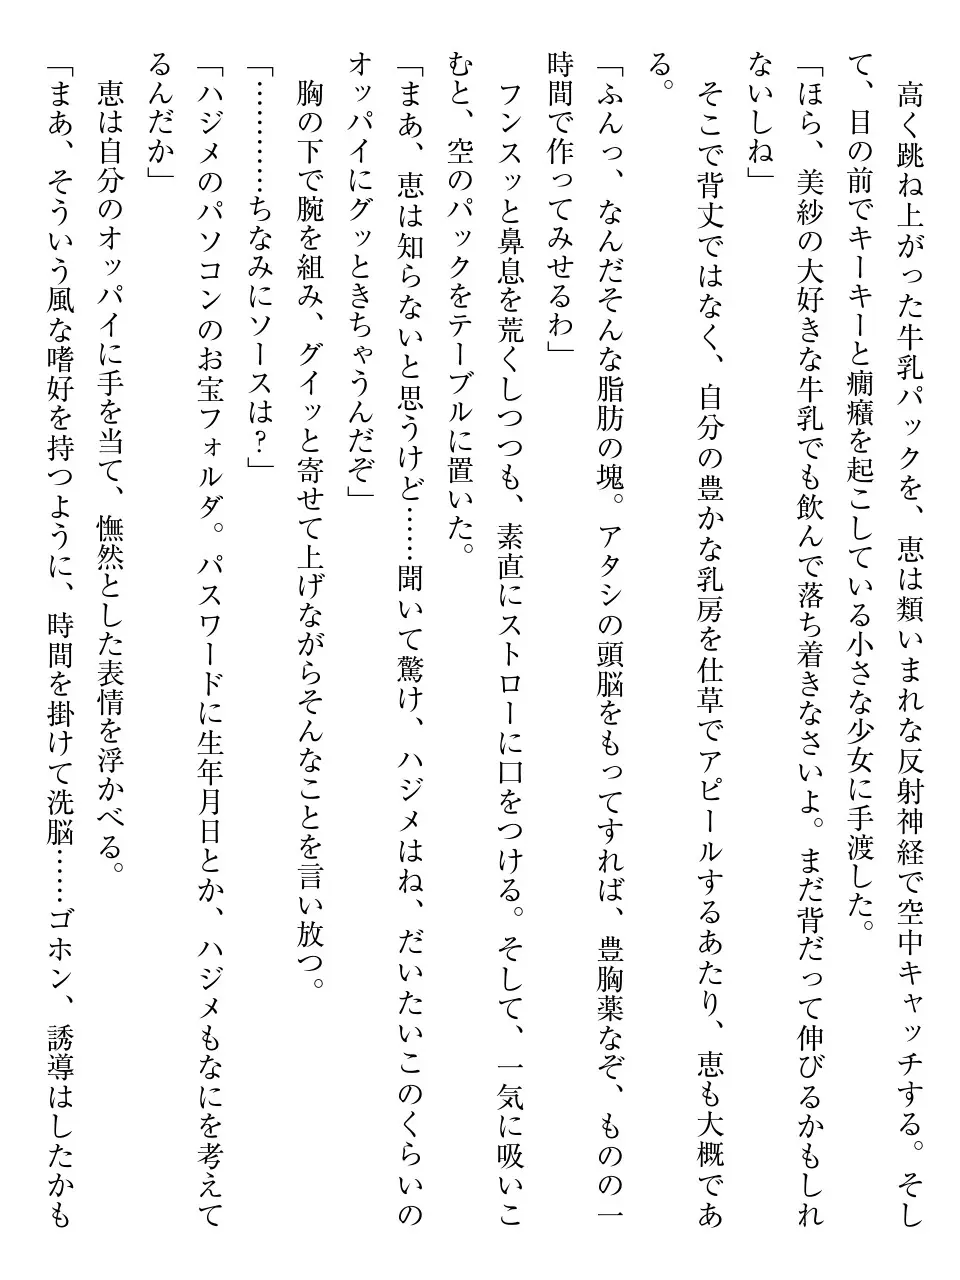 高く跳ね上がった牛乳パックを、恵は類いまれな反射神経で空中キャッチする。そし
て、目の前でキーキーと癇癪を起こしている小さな少女に手渡した。
「ほら、美紗の大好きな牛乳でも飲んで落ち着きなさいよ。まだ背だって伸びるかもしれ
ないしね」
　そこで背丈ではなく、自分の豊かな乳房を仕草でアピールするあたり、恵も大概であ
る。
「ふんっ、なんだそんな脂肪の塊。アタシの頭脳をもってすれば、豊胸薬なぞ、ものの一
時間で作ってみせるわ」
　フンスッと鼻息を荒くしつつも、素直にストローに口をつける。そして、一気に吸いこ
むと、空のパックをテーブルに置いた。
「まあ、恵は知らないと思うけど……聞いて驚け、ハジメはね、だいたいこのくらいの
オッパイにグッときちゃうんだぞ」
　胸の下で腕を組み、グイッと寄せて上げながらそんなことを言い放つ。
「…………ちなみにソースは？」
「ハジメのパソコンのお宝フォルダ。パスワードに生年月日とか、ハジメもなにを考えて
るんだか」
　恵は自分のオッパイに手を当て、憮然とした表情を浮かべる。
「まあ、そういう風な嗜好を持つように、時間を掛けて洗脳……ゴホン、誘導はしたかも